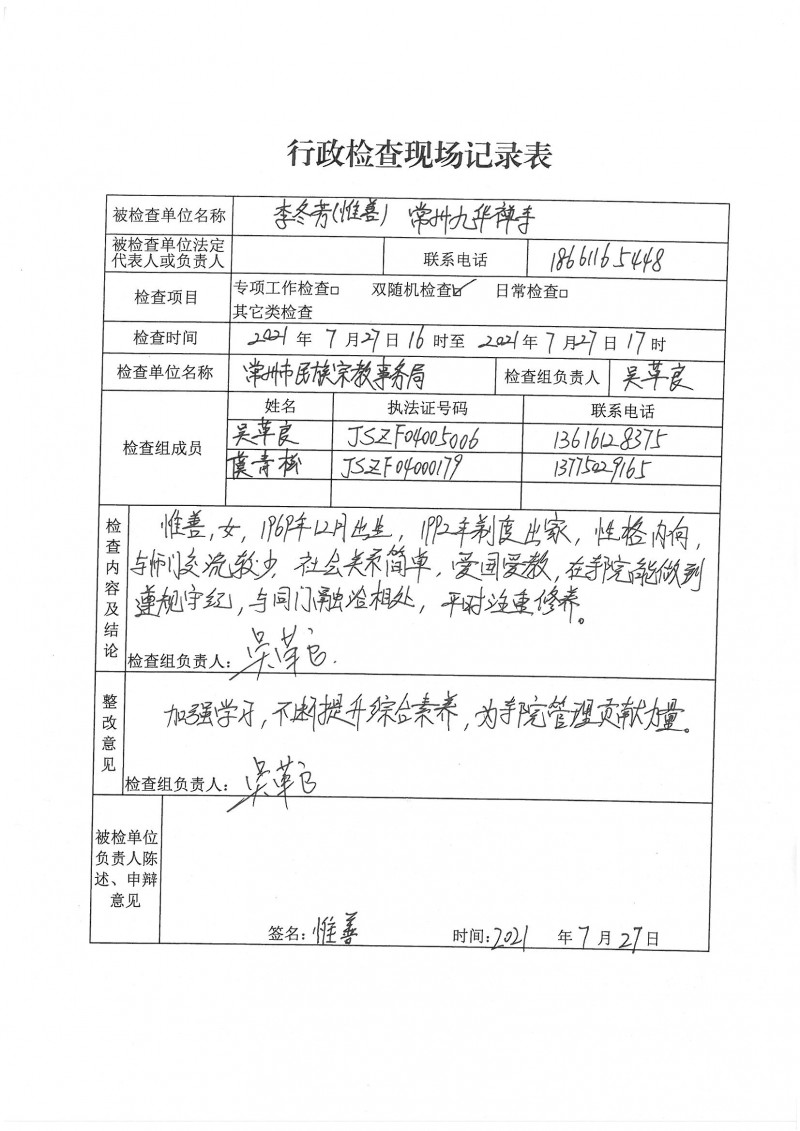 行政检查现场记录表
被检查单位名称 李冬芳(惟善) 常州九华禅寺
被检查单位法定
代表人或负责人 联系电话 18661165448
检查项目 专项工作检查□ 双随机检查☑ 日常检查□
其它类检查
检查时间 2021 年 7 月 27 日 16 时至 2021 年 7 月 27 日 17 时
检查单位名称 常州市民族宗教事务局 检查组负责人 吴革良
检查组成员 姓名 执法证号码 联系电话
吴革良 JSZF04005006 13616128375
青松 JSZF04000179 13775029165
检查内容及结论
惟善,女,1969年12月出生,1992年剃度出家,性格内向,
与师们交流较少,社会关系简单,爱国爱教,在寺院能做到
遵规守纪,与同门融洽相处,平时注重修养。
检查组负责人: 吴革良
整改意见
加强学习,不断提升综合素养,为寺院管理贡献力量。
检查组负责人: 吴革良
被检单位
负责人陈
述、申辩
意见
签名: 惟善 时间: 2021 年 7 月 27 日